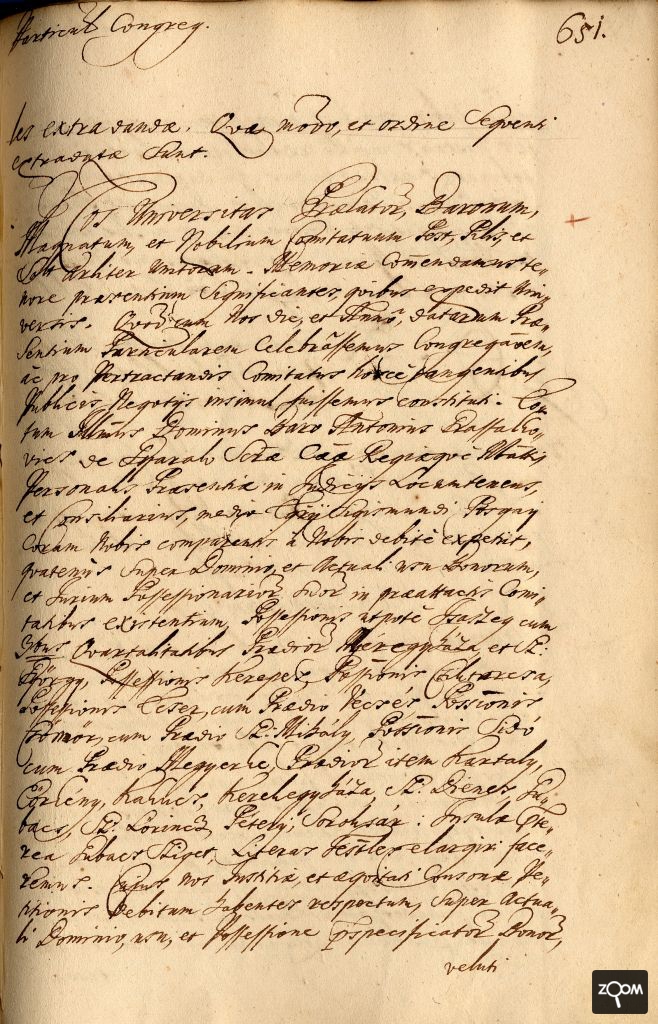 Particul Congreg.
651.
les extradandæ. Quæ modo, et ordine Sequenti
extradatæ Sunt.
Nos Universitas Prælator, Baronum,
Magnatum, et Nobilium Comitatuum Pest, Pilis, et
Solt Unitorum. Memoriæ Comendamus te-
nore præsentium Significantes, quibus expedit Uni-
versis. Quod cum Nos die, et Anno, datarum Præ-
Sentium Particularem Celebrassemus Congregaoem,
ac pro Pertractandis Comitatus hocce tangentibus
Publicis Negotys insimul fuissemus constituti. 
tum Dominus Baro Antonius Grassalko-
vics de Gyarak Regiæque Mattis
Personalis Præsentiæ in Judicys Locumtenens,
et Consiliarius, medio Sigismundi
Coram Nobis comparentis à Nobis debitè expetyt,
quatenus Super Dominio, et Actuali usu Bonorum,
et Jurium Possessionarior in præattactis Comi-
tatibus existentium, Possessionis utpote Isaszeg cum
Quartalitatibus Prædior Kéregyháza, et Sz:
György, Possessionis Kerepes, Possionis Csiktarcsa,
Possessionis Ecser, cum Prædio Vecsés Possionis
Csömör, cum Prædio Sz: Mihály, Possionis Sidó
cum Prædio Megyerke, Prædior item Kartaly,
Kerekegyháza Sz: Dienes,
Sz: Lörincz, Péteri, Soroksár: Insulæ 
rea Sziget, Literas Testles elargiri face-
remus. Cujus nos Justitiæ, et æquitati Consonæ Pe-
titionis debitum habentes respectum, Super Actua-
li Dominio, usu, et Possessione pspecificator Bonor,
veluti
ZOOM